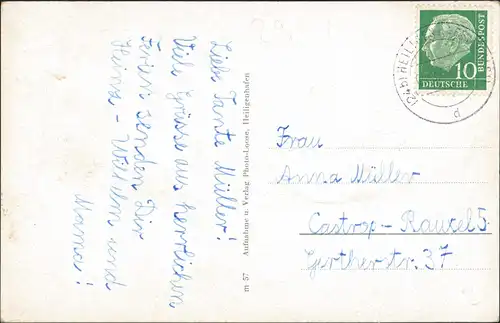 Liebe Tante Müller!
Viel Grüsse aus herrlichen
Ferien senden Dir
Heinz - Wilhelm und
Mama!
m 57 Aufnahme u. Verlag Photo-Loose, Heiligenhafen
10
DEUTSCHE
BUNDESPOST
(24b) HEILI
d
Frau
Anna Müller
Castrop - Rauxel 5
Gertherstr. 37